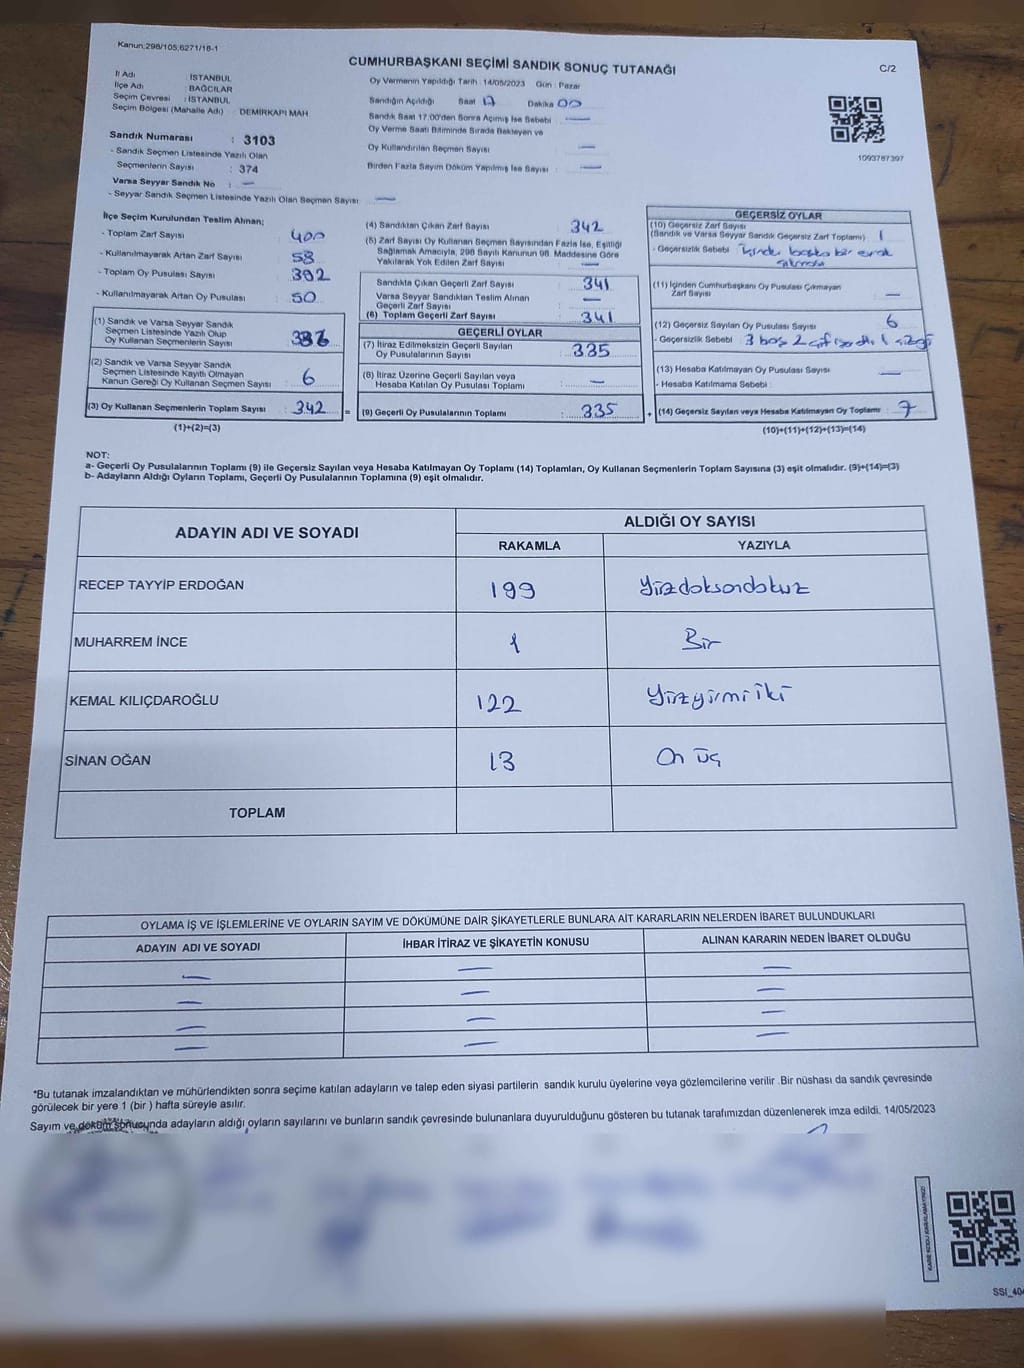 Kanun;298/105;6271/18-1
CUMHURBAŞKANI SEÇİMİ SANDIK SONUÇ TUTANAĞI
C/2
İl Adı : İSTANBUL
İlçe Adı : BAĞCILAR
Seçim Çevresi : İSTANBUL
Seçim Bölgesi (Mahalle Adı) : DEMİRKAPI MAH.
Sandık Numarası : 3103
- Sandık Seçmen Listesinde Yazılı Olan
Seçmenlerin Sayısı : 374
Varsa Seyyar Sandık No : —
- Seyyar Sandık Seçmen Listesinde Yazılı Olan Seçmen Sayısı: —
Oy Vermenin Yapıldığı Tarih : 14/05/2023 Gün : Pazar
Sandığın Açıldığı Saat 17 Dakika 00
Sandık Saat 17.00'den Sonra Açılmış İse Sebebi : —
Oy Verme Saati Bitiminde Sırada Bekleyen ve
Oy Kullandırılan Seçmen Sayısı : —
Birden Fazla Sayım Döküm Yapılmış İse Sayısı : —
1093787397
İlçe Seçim Kurulundan Teslim Alınan;
- Toplam Zarf Sayısı : 400
- Kullanılmayarak Artan Zarf Sayısı : 58
- Toplam Oy Pusulası Sayısı : 392
- Kullanılmayarak Artan Oy Pusulası : 50
(1) Sandık ve Varsa Seyyar Sandık
Seçmen Listesinde Yazılı Olup
Oy Kullanan Seçmenlerin Sayısı : 336
(2) Sandık ve Varsa Seyyar Sandık
Seçmen Listesinde Kayıtlı Olmayan
Kanun Gereği Oy Kullanan Seçmen Sayısı : 6
(3) Oy Kullanan Seçmenlerin Toplam Sayısı : 342
(1)+(2)=(3)
(4) Sandıktan Çıkan Zarf Sayısı : 342
(5) Zarf Sayısı Oy Kullanan Seçmen Sayısından Fazla İse, Eşitliği
Sağlamak Amacıyla, 298 Sayılı Kanunun 98. Maddesine Göre
Yakılarak Yok Edilen Zarf Sayısı : —
Sandıkta Çıkan Geçerli Zarf Sayısı : 341
Varsa Seyyar Sandıktan Teslim Alınan
Geçerli Zarf Sayısı : —
(6) Toplam Geçerli Zarf Sayısı : 341
GEÇERLİ OYLAR
(7) İtiraz Edilmeksizin Geçerli Sayılan
Oy Pusulalarının Sayısı : 335
(8) İtiraz Üzerine Geçerli Sayılan veya
Hesaba Katılan Oy Pusulası Toplamı : —
(9) Geçerli Oy Pusulalarının Toplamı : 335
=
+
GEÇERSİZ OYLAR
(10) Geçersiz Zarf Sayısı
(Sandık ve Varsa Seyyar Sandık Geçersiz Zarf Toplamı) : 1
- Geçersizlik Sebebi : içinden başka bir evrak
çıkması
(11) İçinden Cumhurbaşkanı Oy Pusulası Çıkmayan
Zarf Sayısı : —
(12) Geçersiz Sayılan Oy Pusulası Sayısı : 6
- Geçersizlik Sebebi : 3 boş 2 çift 1
(13) Hesaba Katılmayan Oy Pusulası Sayısı : —
- Hesaba Katılmama Sebebi :
(14) Geçersiz Sayılan veya Hesaba Katılmayan Oy Toplamı : 7
(10)+(11)+(12)+(13)=(14)
NOT:
a- Geçerli Oy Pusulalarının Toplamı (9) ile Geçersiz Sayılan veya Hesaba Katılmayan Oy Toplamı (14) Toplamları, Oy Kullanan Seçmenlerin Toplam Sayısına (3) eşit olmalıdır. (9)+(14)=(3)
b- Adayların Aldığı Oyların Toplamı, Geçerli Oy Pusulalarının Toplamına (9) eşit olmalıdır.
ADAYIN ADI VE SOYADI
ALDIĞI OY SAYISI
RAKAMLA YAZIYLA
RECEP TAYYİP ERDOĞAN 199 Yüzdoksandokuz
MUHARREM İNCE 1 Bir
KEMAL KILIÇDAROĞLU 122 Yüzyirmi iki
SİNAN OĞAN 13 On üç
TOPLAM
OYLAMA İŞ VE İŞLEMLERİNE VE OYLARIN SAYIM VE DÖKÜMÜNE DAİR ŞİKAYETLERLE BUNLARA AİT KARARLARIN NELERDEN İBARET BULUNDUKLARI
ADAYIN ADI VE SOYADI İHBAR İTİRAZ VE ŞİKAYETİN KONUSU ALINAN KARARIN NEDEN İBARET OLDUĞU
— — —
— — —
— — —
— — —
*Bu tutanak imzalandıktan ve mühürlendikten sonra seçime katılan adayların ve talep eden siyasi partilerin sandık kurulu üyelerine veya gözlemcilerine verilir .Bir nüshası da sandık çevresinde
görülecek bir yere 1 (bir ) hafta süreyle asılır.
Sayım ve döküm sonucunda adayların aldığı oyların sayılarını ve bunların sandık çevresinde bulunanlara duyurulduğunu gösteren bu tutanak tarafımızdan düzenlenerek imza edildi. 14/05/2023
KARE KODU KARALAMAYINIZ!
SSI_40